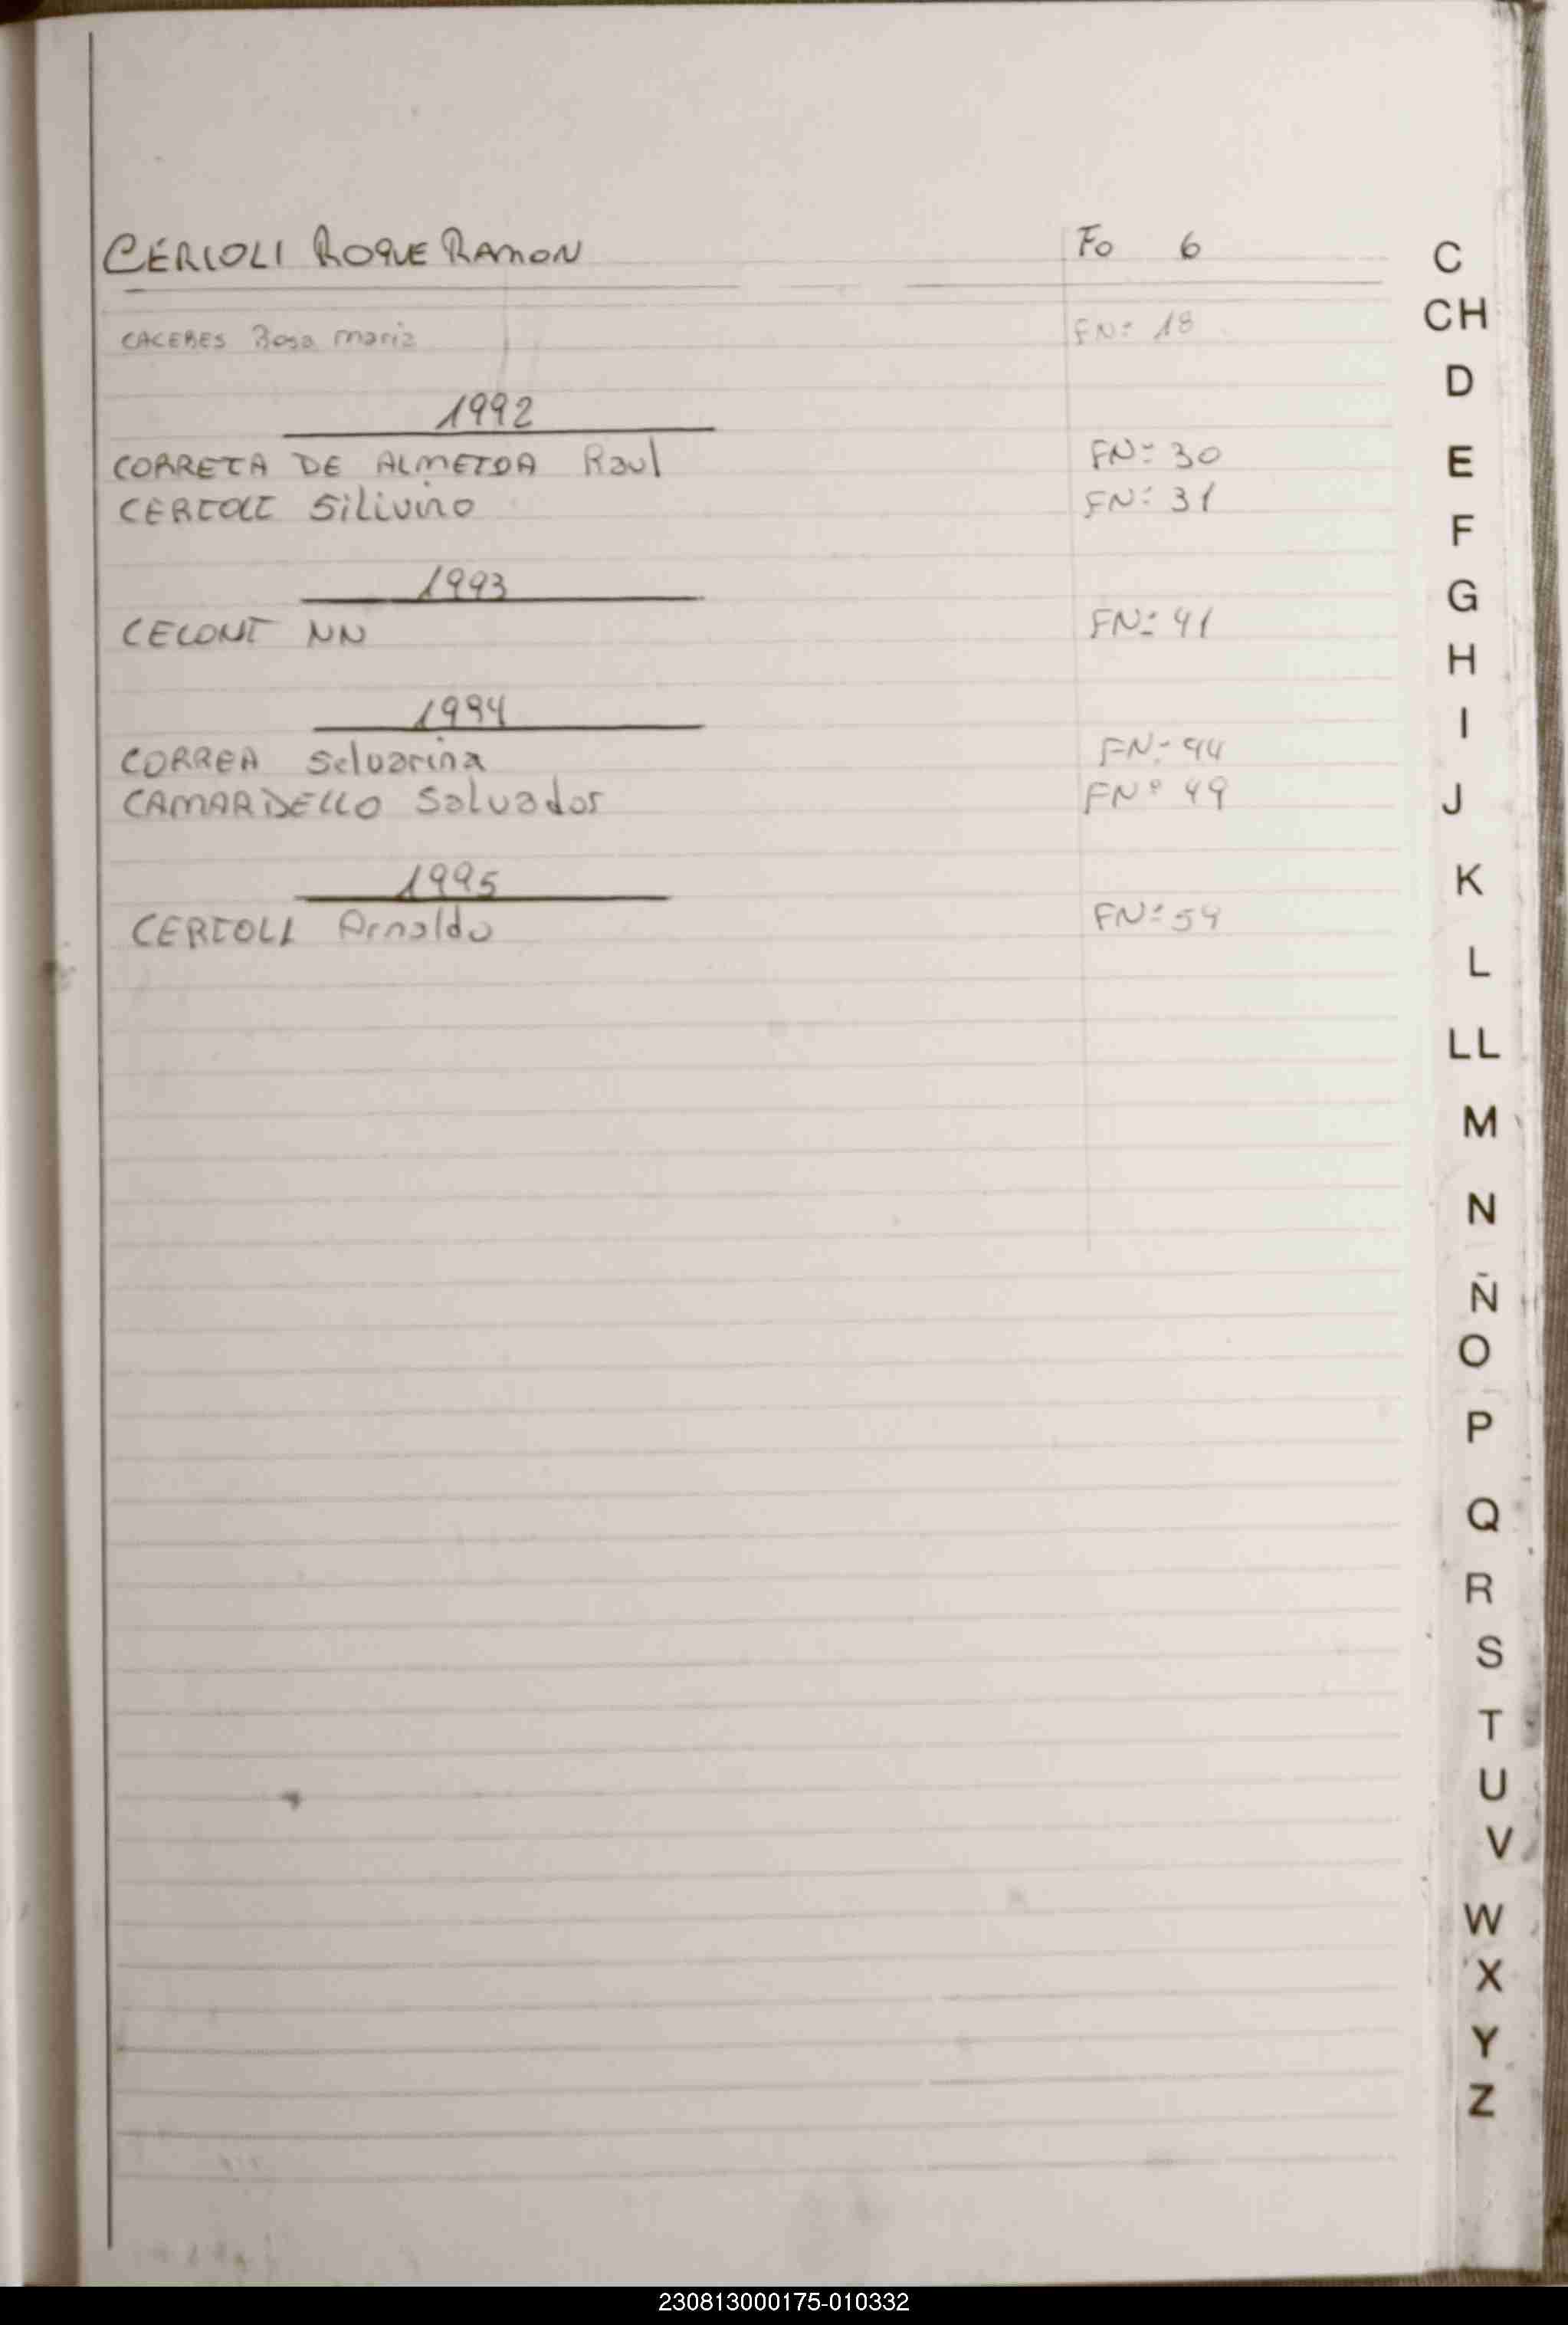 CERIOLI ROQUE RAMON Fo 6
CACERES Rosa Maria FNº 18
1992
CORREIA DE ALMEIDA Raul FNº 30
CERIOLI Silivino FNº 31
1993
CELONI NN FNº 41
1994
CORREA Selvarina FNº 44
CAMARDELLO Salvador FNº 49
1995
CERIOLI Arnaldo FNº 54
C
CH
D
E
F
G
H
I
J
K
L
LL
M
N
Ñ
O
P
Q
R
S
T
U
V
W
X
Y
Z
230813000175-010332